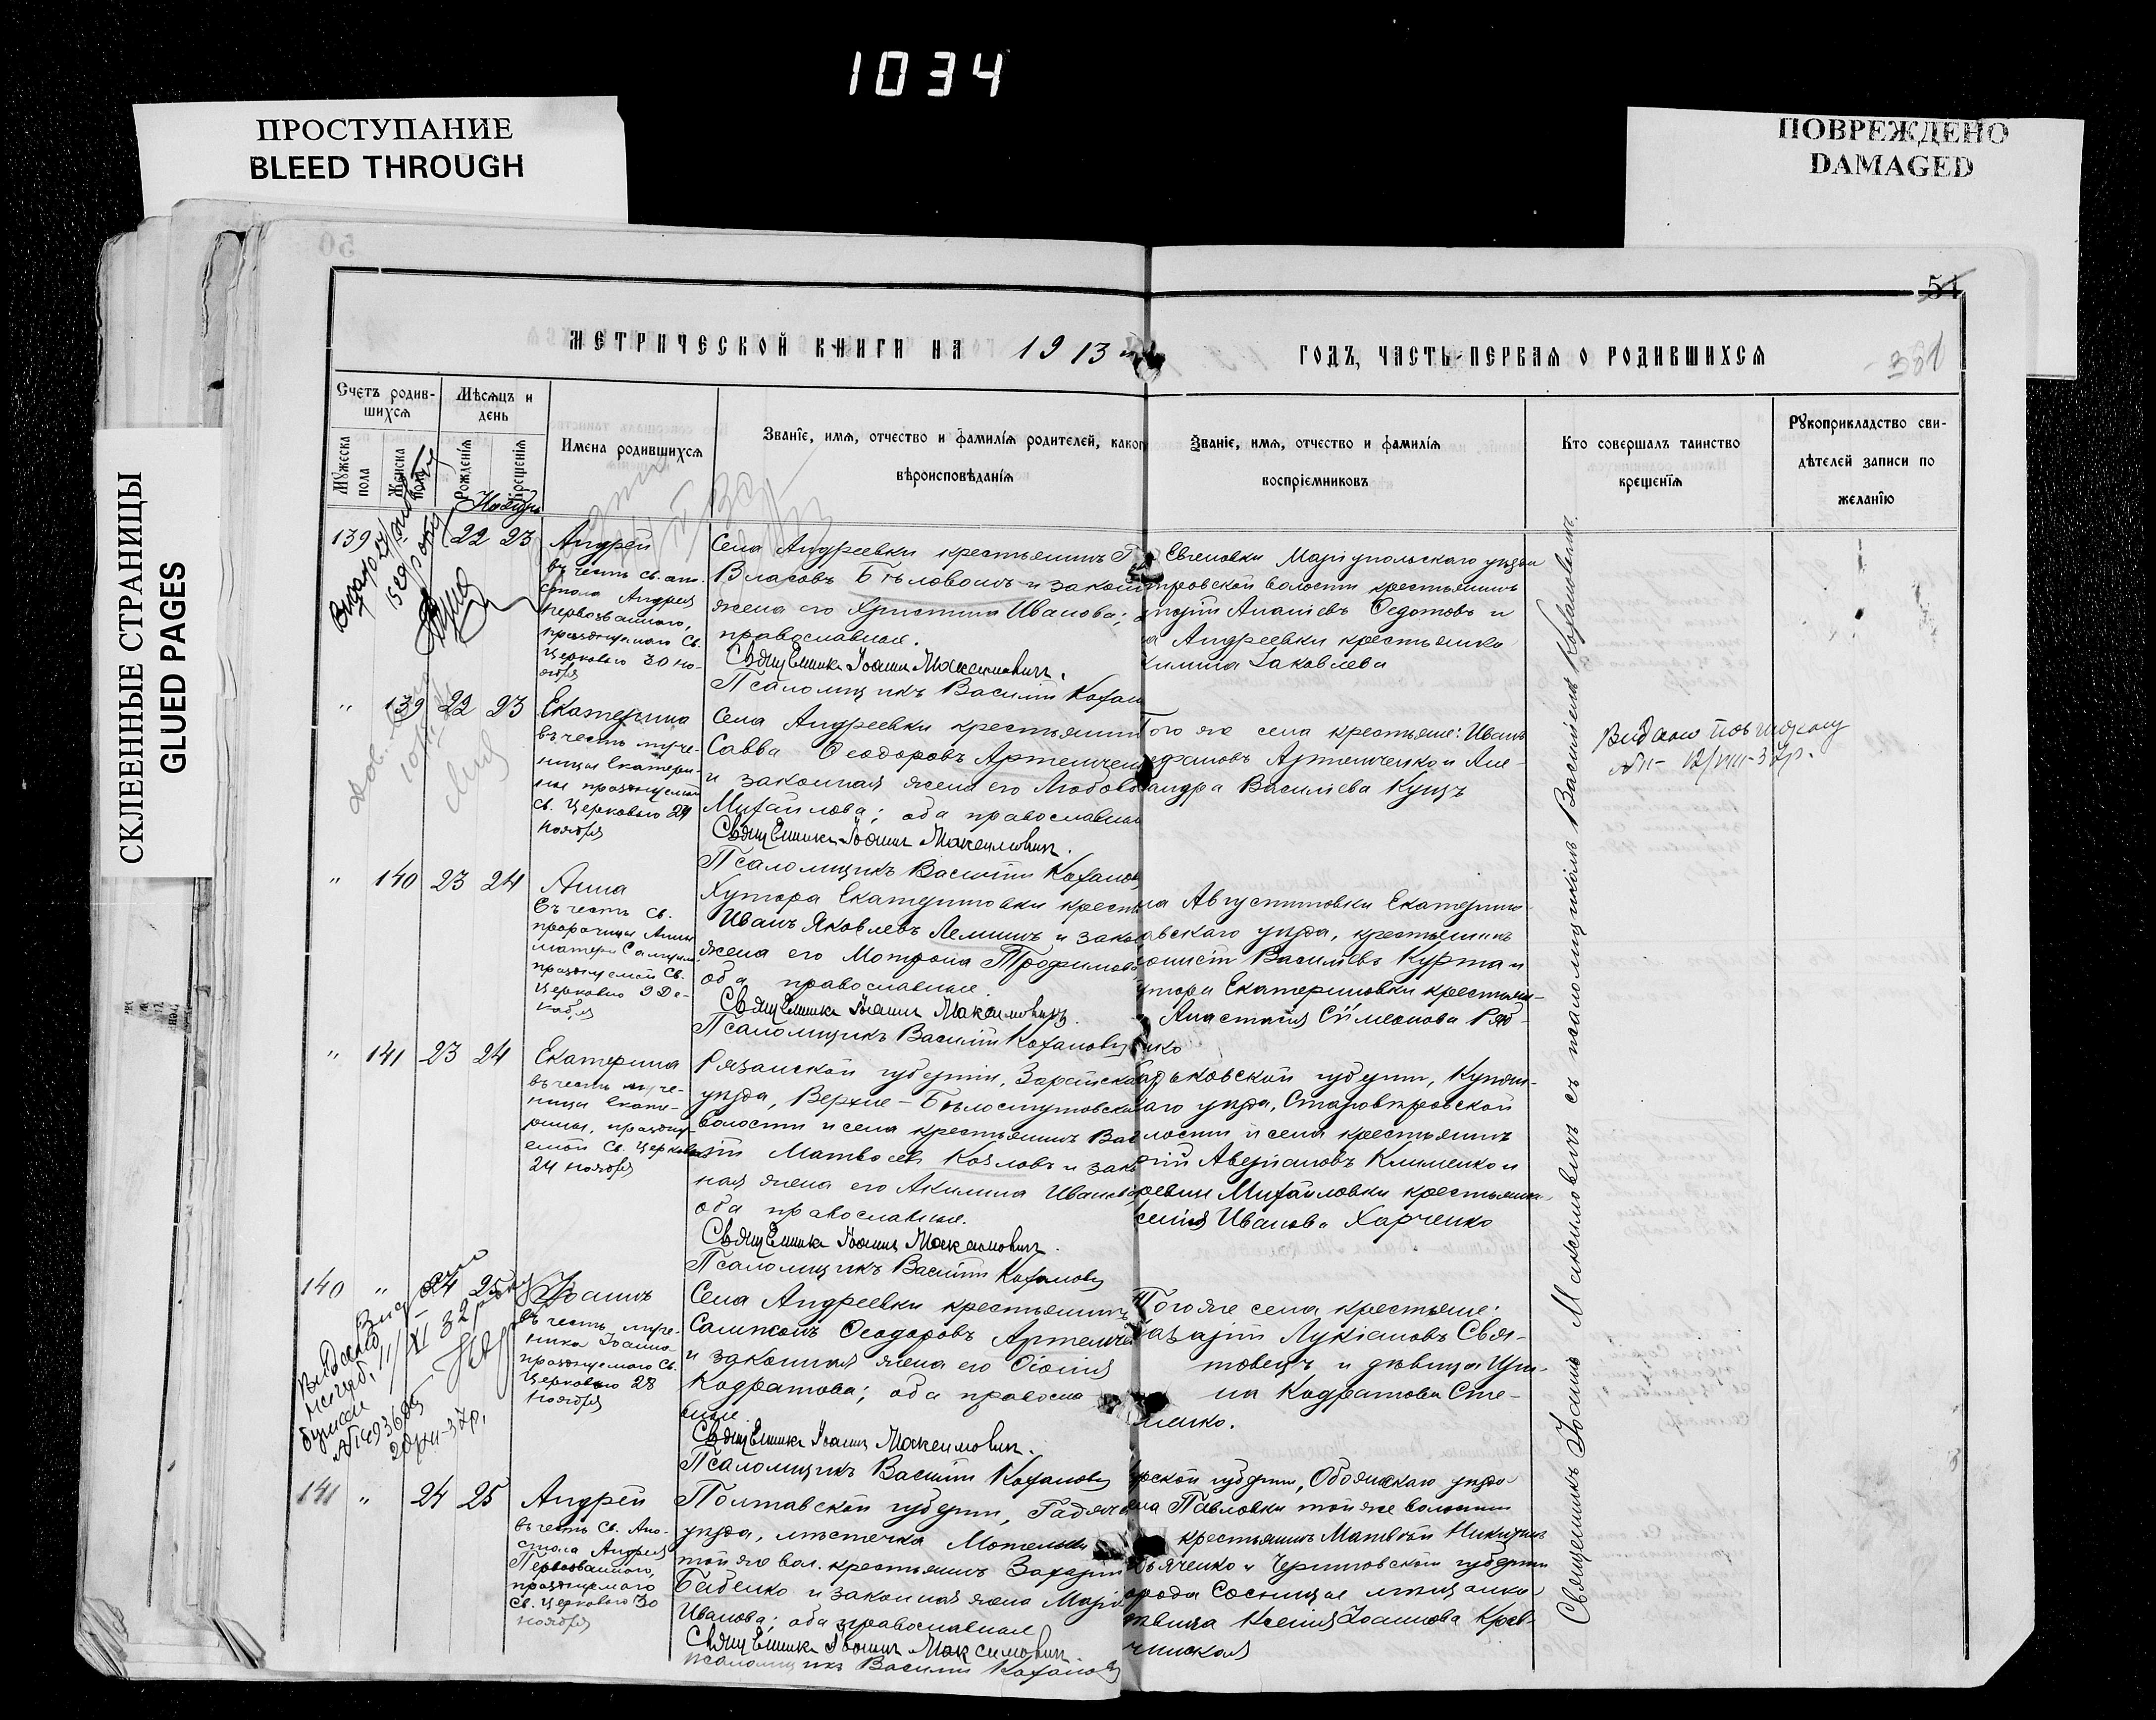 1034
ПРОСТУПАНИЕ
BLEED THROUGH
ПОВРЕЖДЕНО
DAMAGED
СКЛЕЕННЫЕ СТРАНИЦЫ
GLUED PAGES
50
54
381
МЕТРИЧЕСКОЙ КНИГИ НА 1913
ГОДЪ, ЧАСТЬ ПЕРВАЯ О РОДИВШИХСЯ
Счетъ родив-
шихся
Мужеска
пола
Женска
пола
Мѣсяцъ и
день
Рожденія
Крещенія
Имена родившихся
Званіе, имя, отчество и фамилія родителей, какого
вѣроисповѣданія
Званіе, имя, отчество и фамилія
воспріемниковъ
Кто совершалъ таинство
крещенія
Рукоприкладство сви-
дѣтелей записи по
желанію
Ноябрь
139 22 23
Андрей
въ честь св. апо-
стола Андрея
Первозваннаго,
празднуемаго Св.
Церковью 30 но-
ября
Села Андреевки крестьянинъ
Власовъ Бѣловолъ и закон
жена его Христина Иванова;
православные.
Священникъ Іоаннъ Максимовичъ.
Псаломщикъ Василій Кохан
Евгеновки Маріупольскаго уѣзда
волости крестьянинъ
Ананіевъ Федотовъ и
Андреевки крестьянка
Яковлева
" 139 22 23
Екатерина
въ честь муче-
ницы Екатери-
ны празднуемой
Св. Церковью 24
ноября
Села Андреевки крестьянинъ
Савва Ѳеодоровъ Артемчен
и законная жена его Любовь
Михайлова; оба православные
Священникъ Іоаннъ Максимовичъ.
Псаломщикъ Василій Коханов
Того же села крестьяне: Иванъ
ефановъ Артемченко и Але-
андра Василіева Куцъ
Видано
12/VIII-37р.
" 140 23 24
Анна
въ честь св.
пророчицы Анны
матери Самуила
празднуемой Св.
Церковью 9 Де-
кабря
Хутора Екатериновки крестья
Иванъ Яковлевъ Леминъ и закон
жена его Мотрона Трофимова
оба православные.
Священникъ Іоаннъ Максимовичъ.
Псаломщикъ Василій Коханов
на Августиновки Екатерино-
авскаго уѣзда, крестьянинъ
Василіевъ Курта и
утора Екатериновки крестьян-
Анастасія Симеонова Ряб-
нко
" 141 23 24
Екатерина
въ честь муче-
ницы Екате-
рины, праздну-
емой Св. Церковью
24 ноября
Рязанской губерніи, Зарайска
уѣзда, Верхне-Бѣлоомутовск
волости и села крестьянинъ Вас
илій Матвѣевъ Козловъ и зак
ная жена его Акилина Иванова
оба православные.
Священникъ Іоаннъ Максимовичъ.
Псаломщикъ Василій Коханов
арьковской губерніи, Купян-
каго уѣзда, Старовѣровской
олости и села крестьянинъ
Аверіановъ Клименко и
ревни Михайловки крестьянка
Иванова Харченко
140 " 24 25
Іоаннъ
въ честь муче-
ника Іоанна
празднуемаго Св.
Церковью 28
ноября
20/XII-37р.
Села Андреевки крестьянинъ
Самсонъ Ѳеодоровъ Артемче
и законная жена его
Кодратова; оба правосла
вные.
Священникъ Іоаннъ Максимовичъ.
Псаломщикъ Василій Коханов
Того же села крестьяне:
азарій Лукіановъ Свя-
товецъ и дѣвица Ири-
на Кодратова Сте-
ненко.
141 " 24 25
Андрей
въ честь Св. Апо-
стола Андрея
Первозваннаго,
празднуемаго
Св. Церковью 30
ноября
Полтавской губерніи, Гадяч
уѣзда, мѣстечка
той же вол. крестьянинъ Захарій
Бабенко и законная жена Марія
Иванова; оба православные
Священникъ Іоаннъ Максимовичъ.
псаломщикъ Василій Коханов
урской губерніи, Обоянскаго уѣзда
ла Павловки той же волости
крестьянинъ Матвѣй Никитинъ
Дьяченко и Черниговской губерніи
орода Сосницы мѣщанка
дѣвица Ксенія Іоаннова Крав-
чинская
Священникъ Іоаннъ Максимовичъ съ псаломщикомъ Василіемъ Кохановичъ.